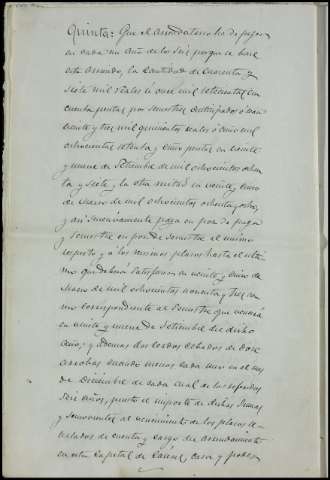 Quinta: Que el arrendatario ha de pagar
en cada un año de los seis porque se hace
este arriendo, la cantidad de cuarenta y
siete mil reales o once mil setecientas cin
cuenta pesetas por semestres anticipados o sean
veinte y tres mil quinientos reales o cinco mil
ochocientas setenta y cinco pesetas en veinte
y nueve de Setiembre de mil ochocientos ochen
ta y siete, y la otra mitad en veinte y cinco
de Marzo de mil ochocientos ochenta y ocho,
y asi sucesivamente paga en pos de paga
y semestre en pos de semestre al mismo
respeto y a los mismos plazos hasta el ulti
mo que deberá satisfacer en veinte y cinco de
Marzo de mil ochocientos noventa y tres co
mo correspondiente al semestre que vencerá
en veinte y nueve de Setiembre de dicho
año; y ademas dos cerdos cebados de doce
arrobas cuando menos cada uno en el mes
de Diciembre de cada cual de los referidos
seis años, puesto el importe de dichas sumas
y semovientes al vencimiento de los plazos se
ñalados de cuenta y cargo del arrendamiento
en esta Capital de casa y poder